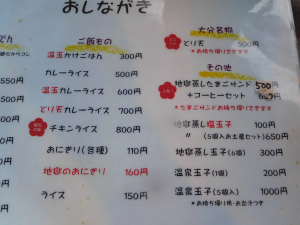 おしながき
どん
550円
600円
700円
500円
ご飯もの
温玉かけごはん 300円
カレーライス 500円
温玉カレーライス 600円
とり天カレーライス 700円
チキンライス 800円
おにぎり(各種) 110円
地獄のおにぎり 160円
ライス 150円
大分名物
とり天 500円
*お持ち帰りできます
その他
地獄蒸したまごサンド 500円
+コーヒーセット
*たまごサンドお持ち帰りできます
地獄蒸し塩玉子 100円
〃 (5個入お土産セット)650円
地獄蒸し玉子(6個) 300円
温泉玉子(1個) 200円
温泉玉子(5個入) 1000円
*お持ち帰り用・お出汁つき